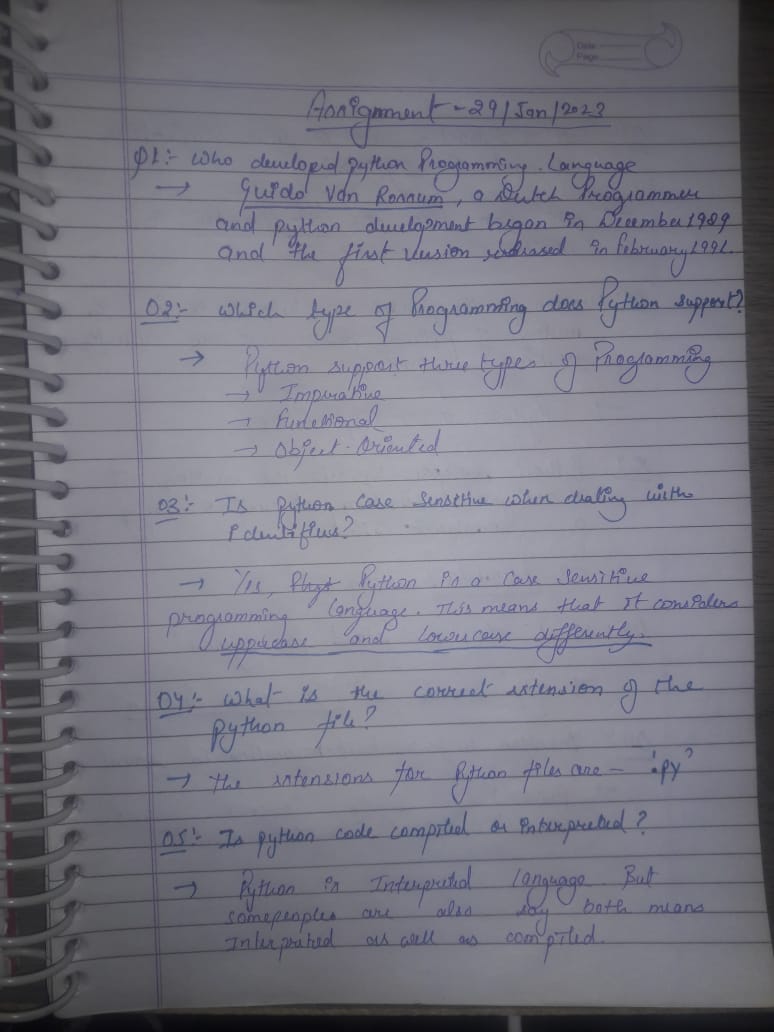 Date
Page
Assignment - 29/Jan/2023
Q1:- Who developed python Programming Language
→ Guido Van Rossum, a Dutch Programmer
and python development began in December 1989
and the first version released in february 1991.
Q2:- Which type of Programming does Python support?
→ Python support three types of Programming
→ Imperative
→ functional
→ Object-Oriented
Q3:- Is python case sensitive when dealing with
identifiers?
→ Yes, Python is a case sensitive
programming language. This means that it considers
uppercase and lowercase differently.
Q4:- What is the correct extension of the
python file?
→ the extensions for Python files are - '.py'
Q5:- Is python code compiled or interpreted?
→ Python is Interpreted language. But
somepeoples are also say both means
Interpreted as well as compiled.